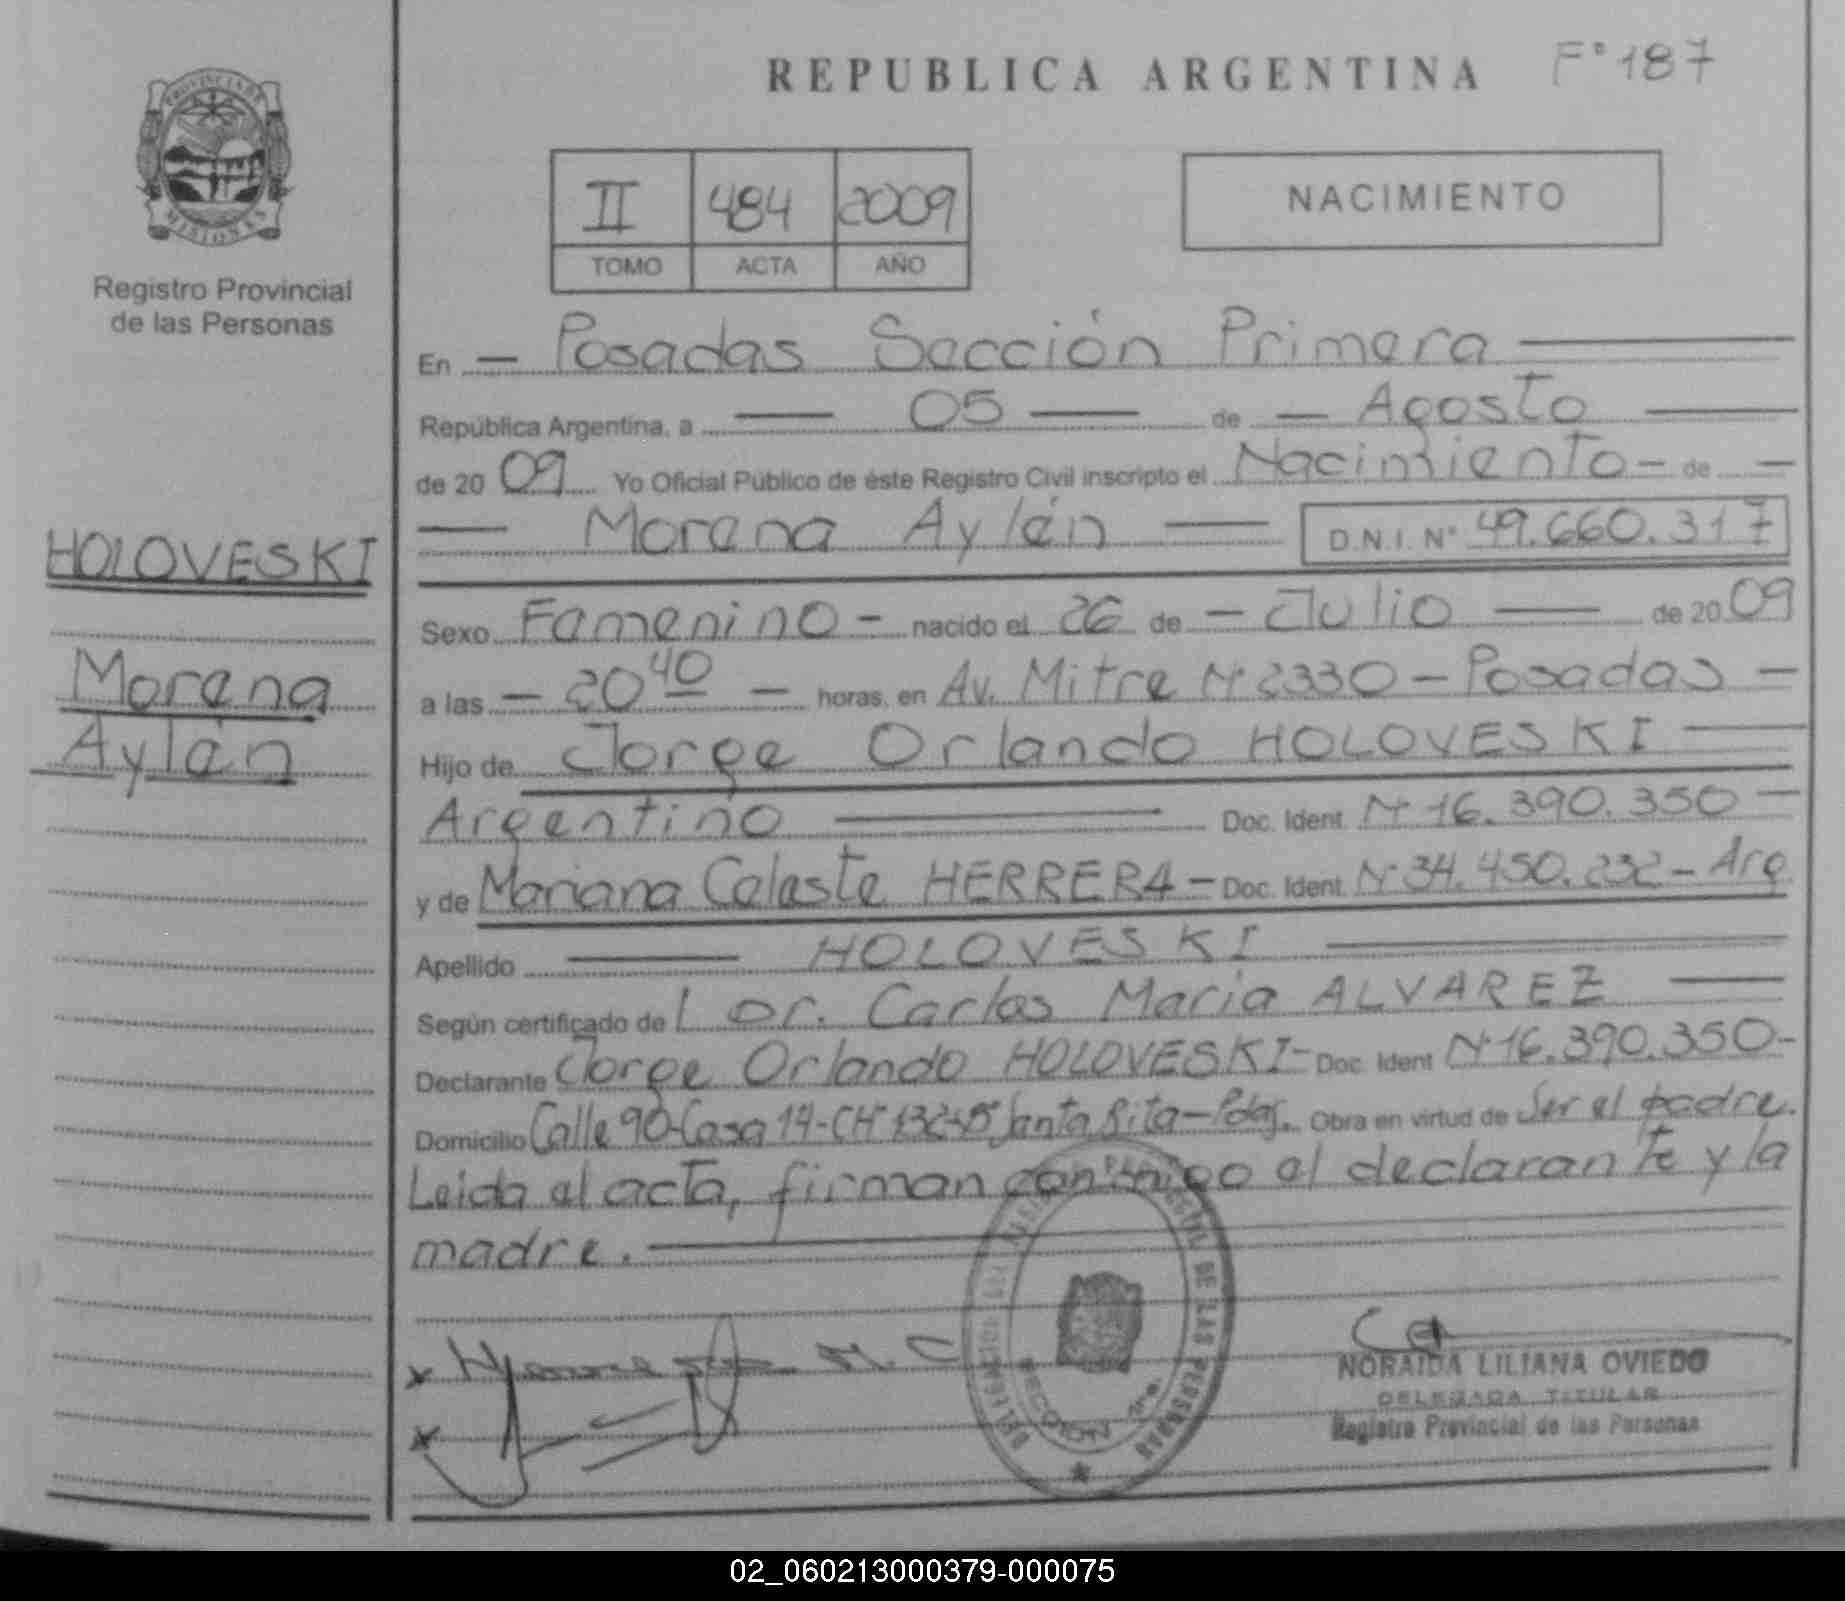 REPUBLICA ARGENTINA F° 187
PROVINCIA DE
MISIONES
Registro Provincial
de las Personas
II 484 2009
TOMO ACTA AÑO
NACIMIENTO
En — Posadas Sección Primera —
República Argentina, a — 05 — de — Agosto —
de 20 09 Yo Oficial Público de éste Registro Civil inscripto el Nacimiento - de —
— Morena Aylén — D.N.I. N° 49.660.317
HOLOVESKI
Morena
Aylén
Sexo Femenino - nacido el 26 de — Julio — de 20 09
a las — 20 40 — horas, en Av. Mitre N° 2330 - Posadas —
Hijo de Jorge Orlando HOLOVESKI —
Argentino — Doc. Ident. N° 16.390.350 —
y de Mariana Celeste HERRERA - Doc. Ident. N° 34.450.232 - Arg
Apellido — HOLOVESKI —
Según certificado de Dr. Carlos Maria ALVAREZ —
Declarante Jorge Orlando HOLOVESKI - Doc. Ident N° 16.390.350 -
Domicilio Calle 90 - Casa 14 - CH Santa Rita - Pdas. Obra en virtud de Ser el padre.
Leida el acta, firman conmigo el declarante y la
madre. —
NORAIDA LILIANA OVIEDO
DELEGADA TITULAR
Registro Provincial de las Personas
02_060213000379-000075